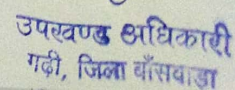 उपखण्ड अधिकारी
गढ़ी, जिला बाँसवाड़ा